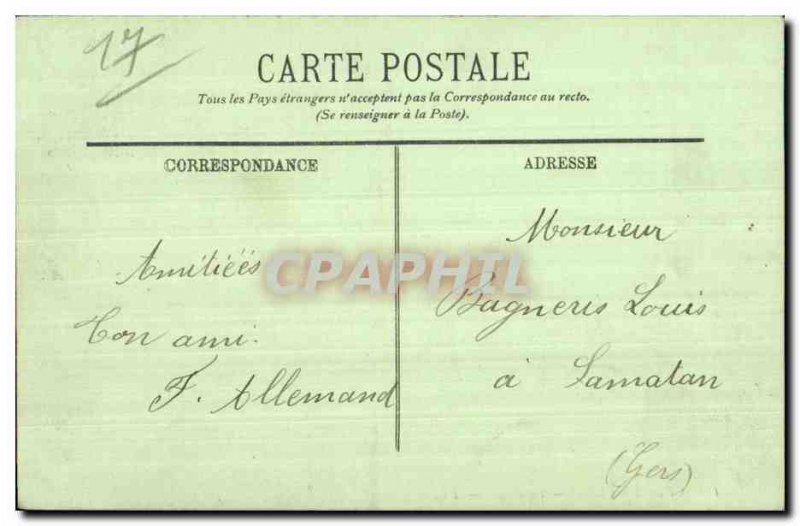 17
CARTE POSTALE
Tous les Pays étrangers n'acceptent pas la Correspondance au recto.
(Se renseigner à la Poste).
CORRESPONDANCE
Amitiéés
Ton ami.
F. Allemand
ADRESSE
Monsieur
Bagneris Louis
à Samatan
(Gers)
CPAPHIL